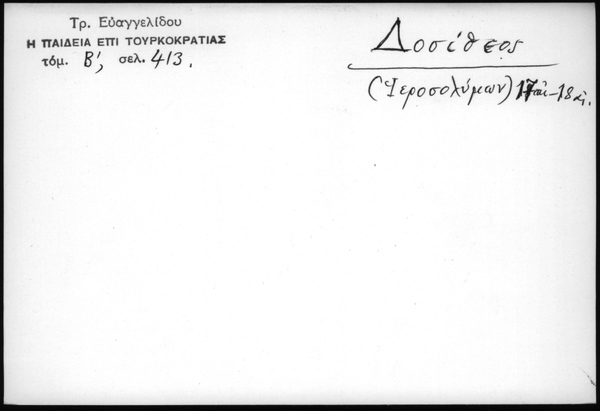 Τρ. Εὐαγγελίδου
Η ΠΑΙΔΕΙΑ ΕΠΙ ΤΟΥΡΚΟΚΡΑΤΙΑΣ
τόμ. Β', σελ. 413.
Δοσίθεος
(Ἱεροσολύμων) 17 αἰ-18 αἰ.